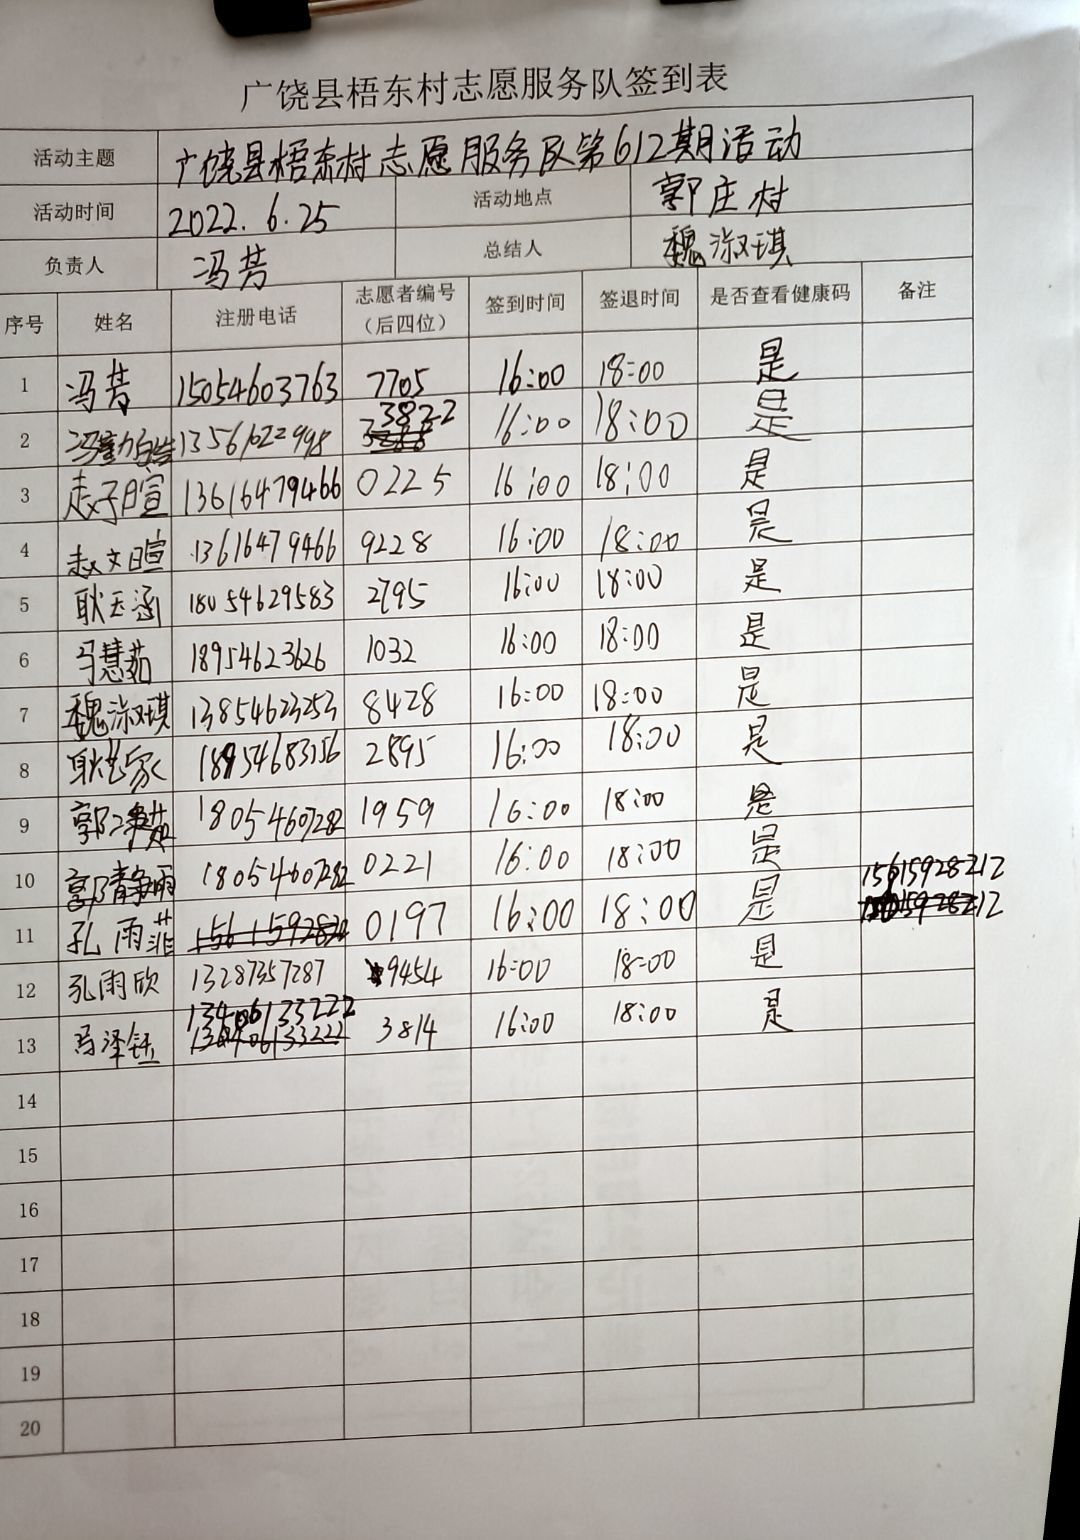 广饶县梧东村志愿服务队签到表
活动主题 广饶县梧东村志愿服务队第612期活动
活动时间 2022.6.25 活动地点 郭庄村
负责人 冯芳 总结人 魏淑琪
序号 姓名 注册电话 志愿者编号（后四位） 签到时间 签退时间 是否查看健康码 备注
1 冯芳 15054603763 7705 16:00 18:00 是
2 13561622998 3822 16:00 18:00 是
3 赵子暄 13616479466 0225 16:00 18:00 是
4 赵文暄 13616479466 9228 16:00 18:00 是
5 耿玉涵 18054629583 2795 16:00 18:00 是
6 马慧茹 18954623626 1032 16:00 18:00 是
7 魏淑琪 13854623253 8428 16:00 18:00 是
8 耿艺家 18954683156 2895 16:00 18:00 是
9 郭 18054607282 1959 16:00 18:00 是
10 郭静雨 18054607282 0221 16:00 18:00 是
11 孔雨菲 0197 16:00 18:00 是 15615928212
12 孔雨欣 13287357287 9454 16:00 18:00 是
13 马泽钰 13406133222 3814 16:00 18:00 是
14
15
16
17
18
19
20